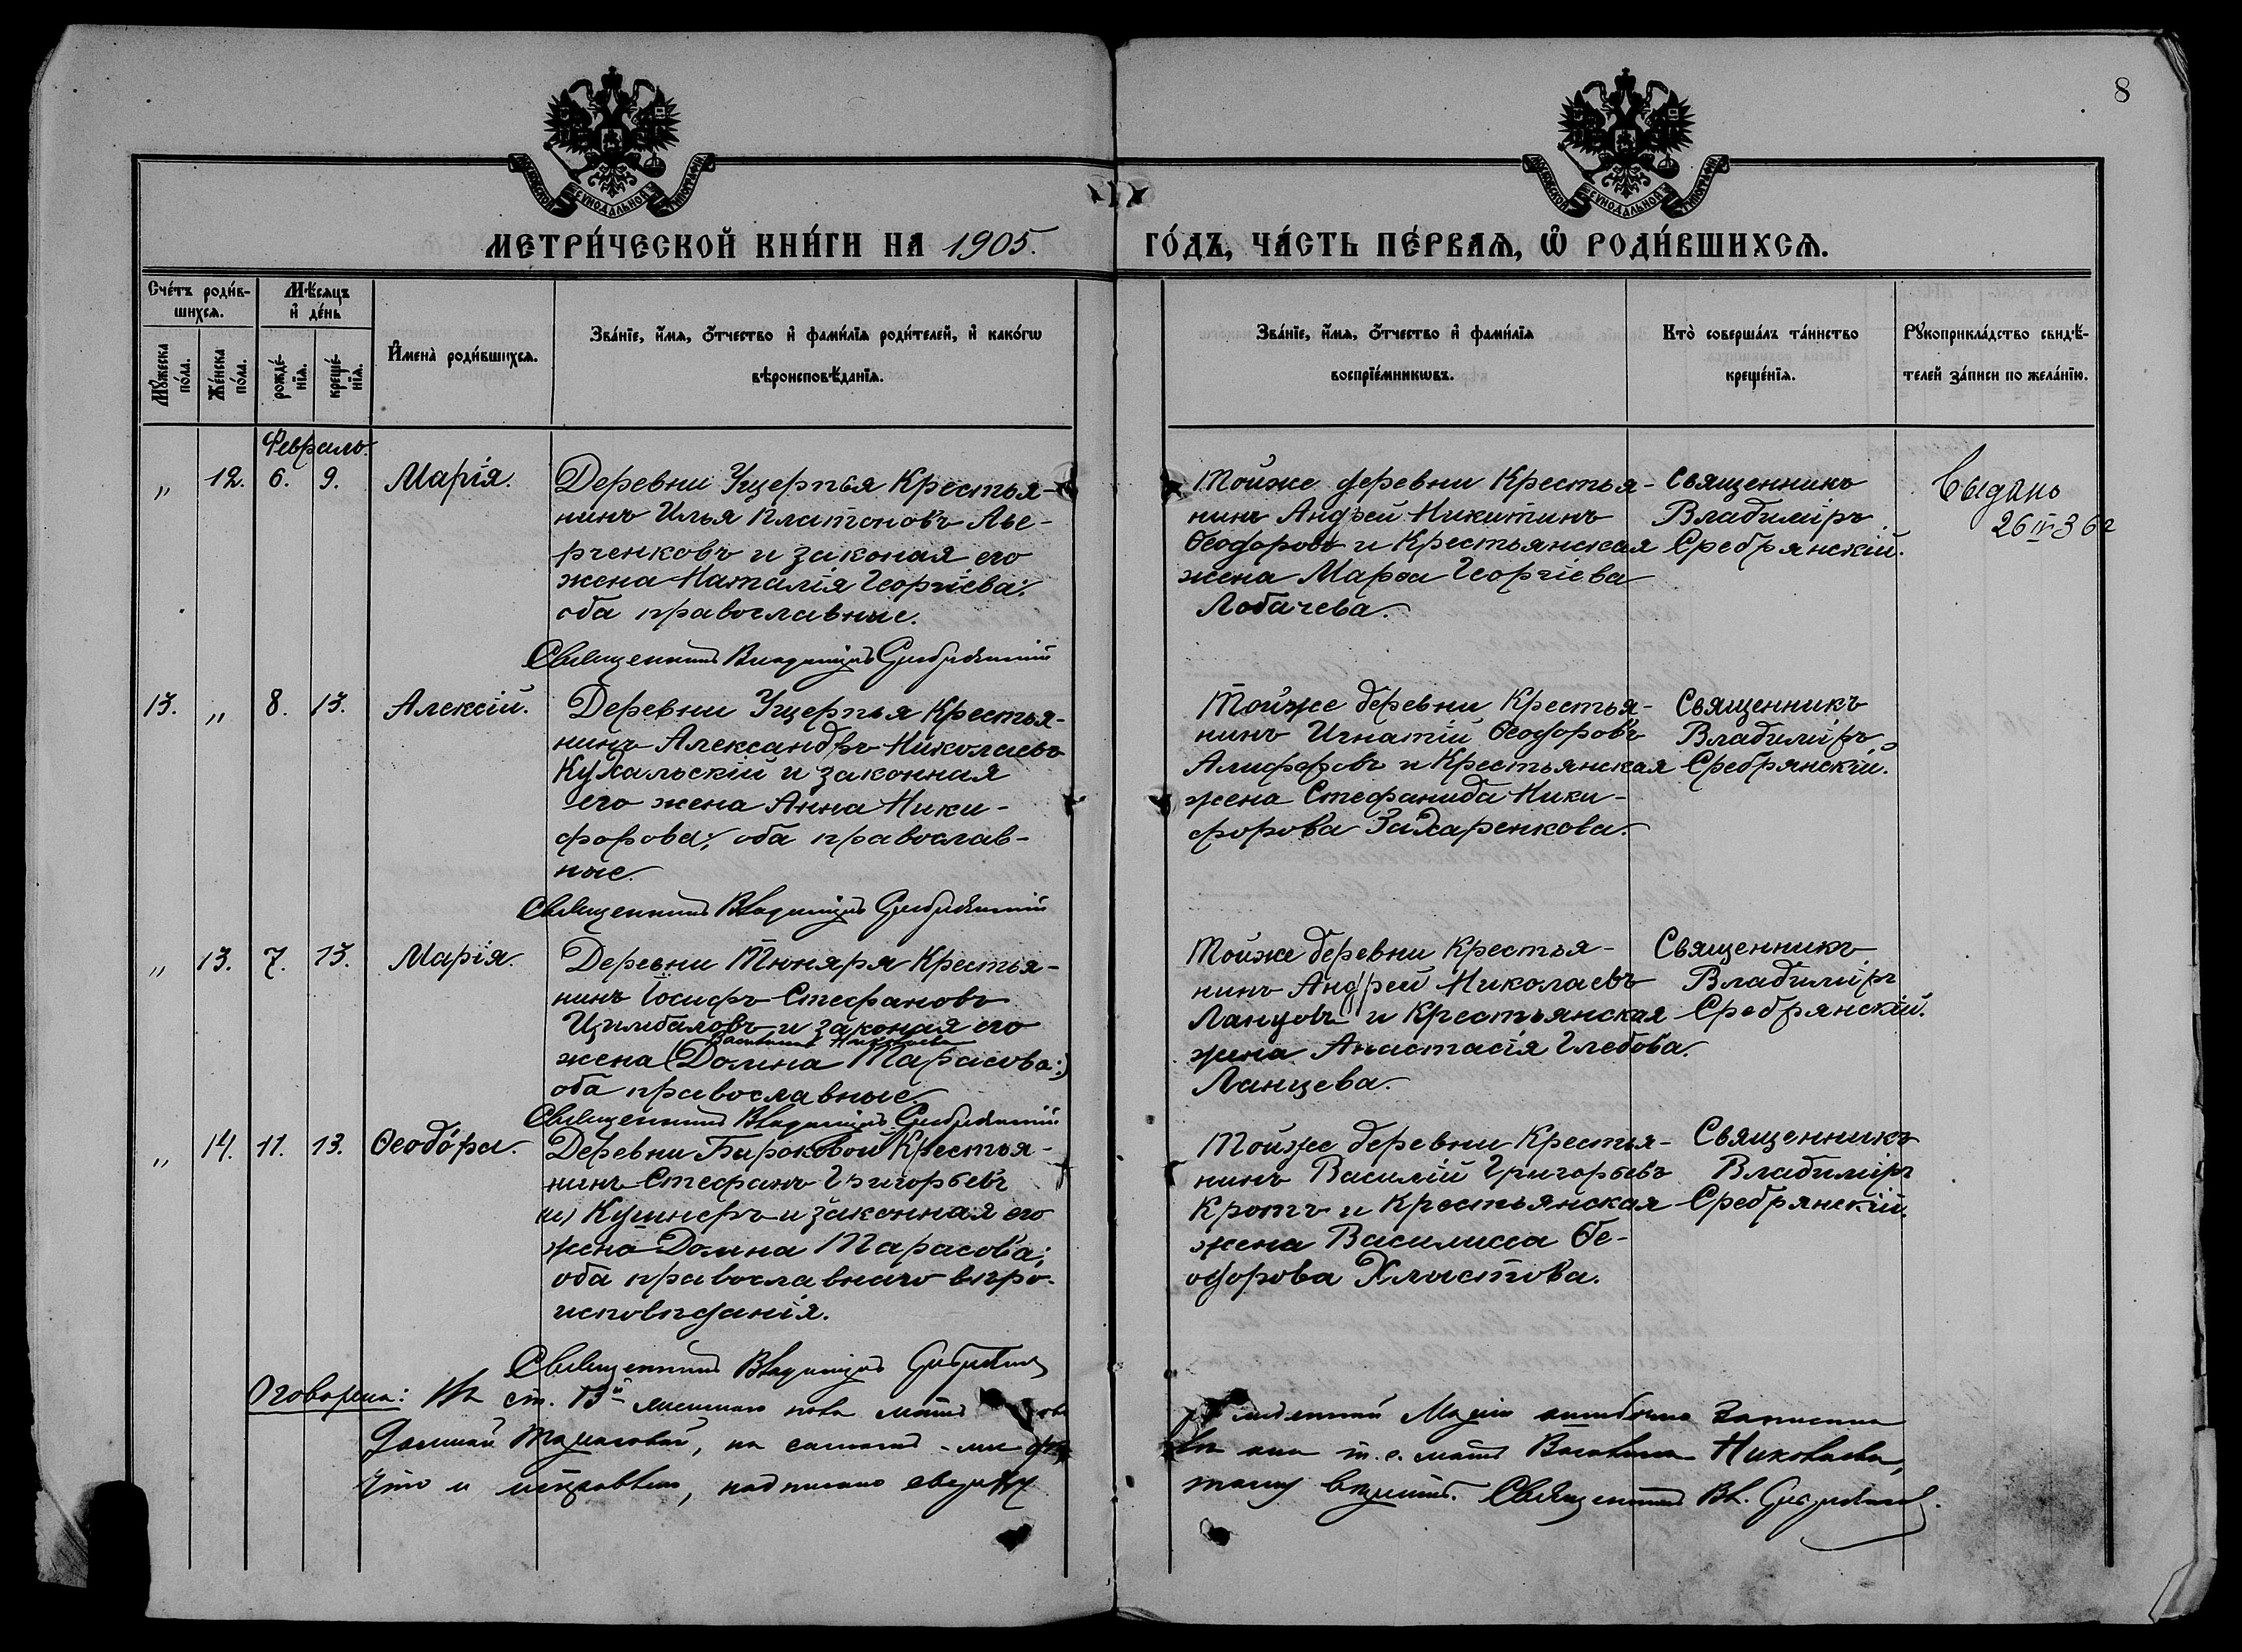 8
МОСКОВСКОЙ СѴНОДАЛЬНОЙ ТИПОГРАФІИ
МОСКОВСКОЙ СѴНОДАЛЬНОЙ ТИПОГРАФІИ
МЕТРИ́ЧЕСКОЙ КНИ́ГИ НА 1905. ГО́ДЪ, ЧА́СТЬ ПЕ́РВАѦ, Ѽ РОДИ́ВШИХСѦ.
Сче́тъ роди́в-
шихсѧ.
Мꙋ́жеска по́ла.
Же́нска по́ла.
Мѣ́сѧцъ
и҆ де́нь
рожде́-
нїѧ.
креще́-
нїѧ.
И҆мена̀ роди́вшихсѧ.
Зва́нїе, и҆́мѧ, ѻ҆́тчество и҆ фами́лїѧ роди́телей, и҆ како́гѡ
вѣроисповѣ́данїѧ.
Зва́нїе, и҆́мѧ, ѻ҆́тчество и҆ фами́лїѧ
воспрїе́мникѡвъ.
Кто̀ соверша́лъ та́инство
креще́нїѧ.
Рꙋкоприкла́дство свидѣ́-
телей за́писи по жела́нїю.
Февраль.
„ 12. 6. 9. Марія.
Деревни Ущерпья Крестья-
нинъ Илья Платоновъ Аве-
рченковъ и законая его
жена Наталія Георгіева;
оба православные.
Священникъ Владиміръ Сребрянскій
Тойже деревни Крестья-
нинъ Андрей Никитинъ
Ѳеодоровъ и Крестьянская
жена Марѳа Георгіева
Лобачева.
Священникъ
Владиміръ
Сребрянскій.
Выдано
26 IV 36 г
13. „ 8. 13. Алексій.
Деревни Ущерпья Крестья-
нинъ Александръ Николаевъ
Кухальскій и законная
его жена Анна Ники-
форова; оба православ-
ные.
Священникъ Владиміръ Сребрянскій
Тойже деревни Крестья-
нинъ Игнатій Ѳеодоровъ
Алифѳровъ и Крестьянская
жена Стефанида Ники-
форова Захаренкова.
Священникъ
Владиміръ
Сребрянскій.
„ 13. 7. 13. Марія.
Деревни Тюняря Крестья-
нинъ Іосифъ Стефановъ
Цимбаловъ и законая его
Василиса Николаева
жена (Домна Тарасова:)
оба православные.
Священникъ Владиміръ Сребрянскій
Тойже деревни Крестья-
нинъ Андрей Николаевъ
Ланцовъ и Крестьянская
жена Анастасія Глебова
Ланцева.
Священникъ
Владиміръ
Сребрянскій.
„ 14. 11. 13. Ѳеодо́ра.
Деревни Бироковой Крестья-
нинъ Стефанъ Григорьевъ
Кушнеръ и законная его
жена Домна Тарасова;
оба православнаго вѣро-
исповѣданія.
Священникъ Владиміръ Сребрянскій
Тойже деревни Крестья-
нинъ Василій Григорьевъ
Кротъ и Крестьянская
жена Василисса Ѳе-
одорова Хлыстова.
Священникъ
Владиміръ
Сребрянскій.
Оговорена: Въ ст. 13й женскаго пола мать младенца Маріи ошибочно записана
Домной Тарасовой, на самомъ же дѣлѣ она т. е. мать Василиса Николаева,
что и исправлено, надписано сверху Священникъ Вл. Сребрянскій.